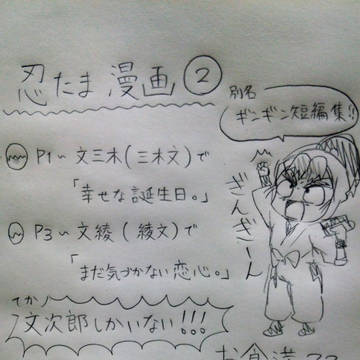 忍たま漫画②
別名
ギンギン短編集!!
P1〜文三木(三木文)で
「幸せな誕生日。」
ぎんぎーん
P3〜文綾(綾文)で
「まだ気づかない恋心。」
てか
文次郎しかいない!!!